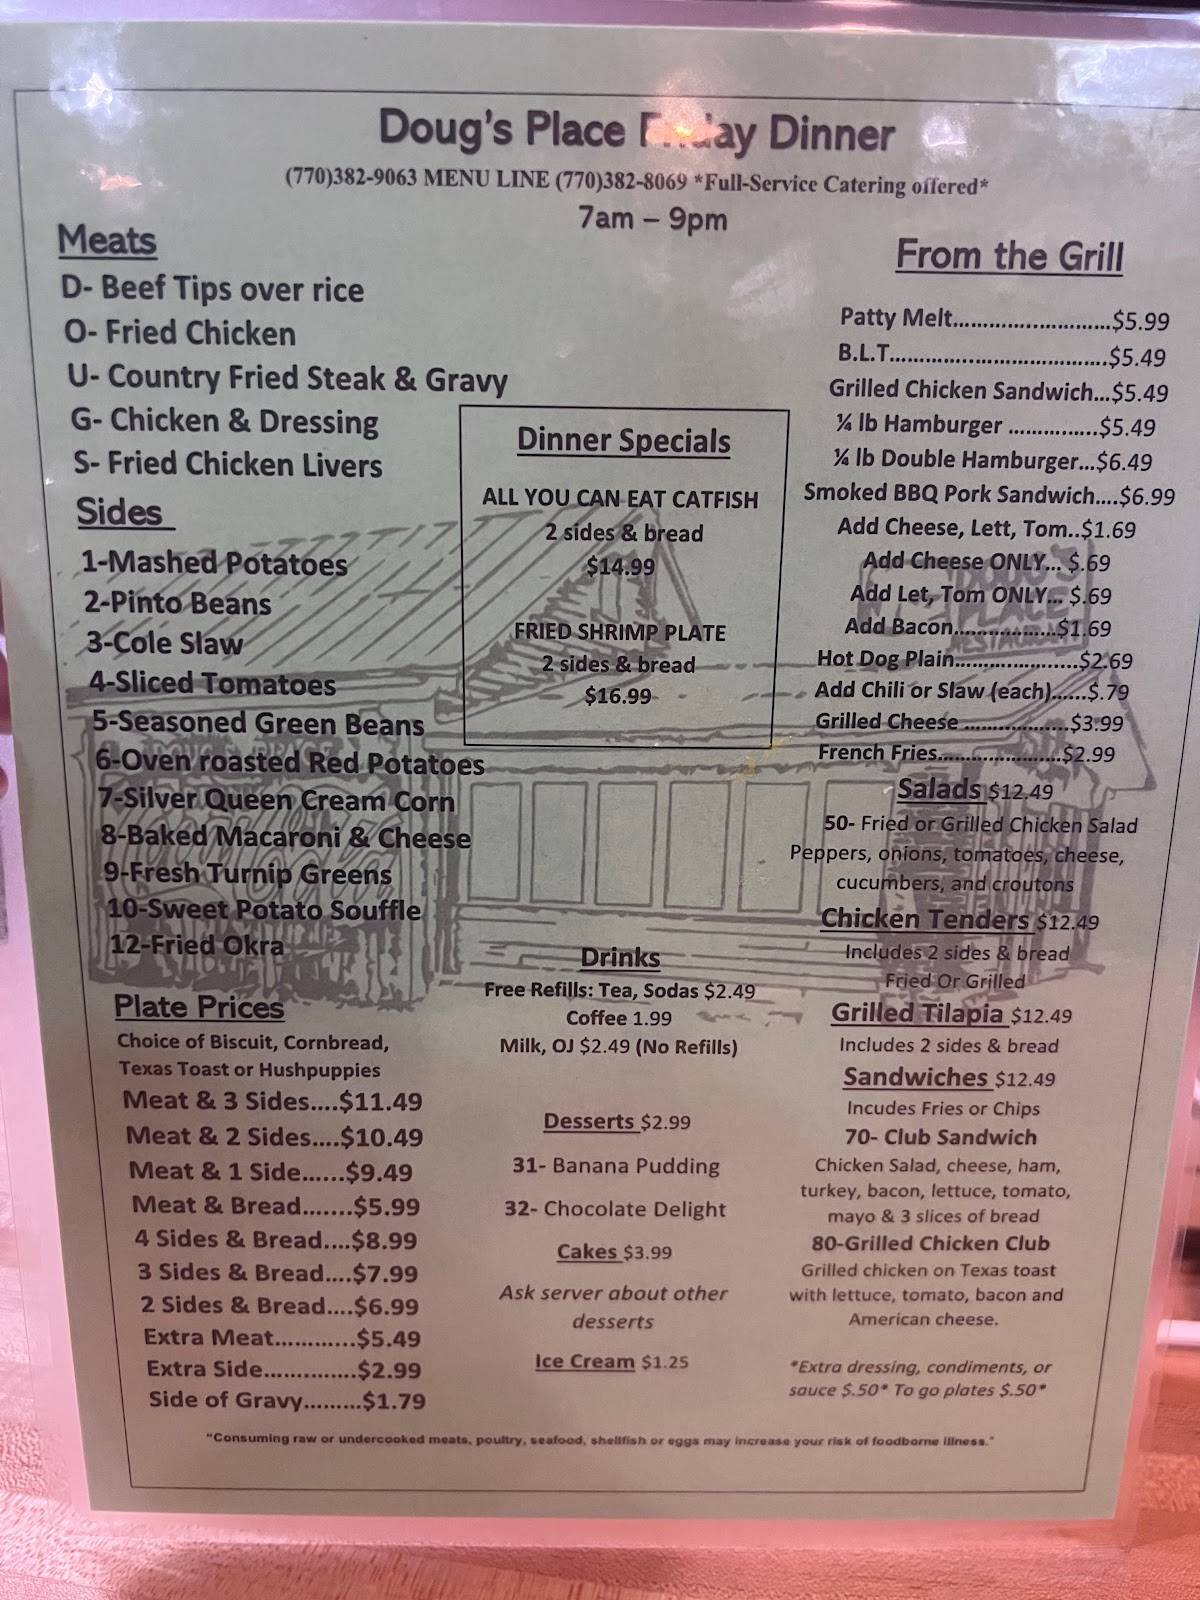 Doug's Place Friday Dinner
(770)382-9063 MENU LINE (770)382-8069 *Full-Service Catering offered*
7am – 9pm
Meats
D- Beef Tips over rice
O- Fried Chicken
U- Country Fried Steak & Gravy
G- Chicken & Dressing
S- Fried Chicken Livers
Sides
1-Mashed Potatoes
2-Pinto Beans
3-Cole Slaw
4-Sliced Tomatoes
5-Seasoned Green Beans
6-Oven roasted Red Potatoes
7-Silver Queen Cream Corn
8-Baked Macaroni & Cheese
9-Fresh Turnip Greens
10-Sweet Potato Souffle
12-Fried Okra
Plate Prices
Choice of Biscuit, Cornbread,
Texas Toast or Hushpuppies
Meat & 3 Sides....$11.49
Meat & 2 Sides....$10.49
Meat & 1 Side......$9.49
Meat & Bread.......$5.99
4 Sides & Bread....$8.99
3 Sides & Bread....$7.99
2 Sides & Bread....$6.99
Extra Meat............$5.49
Extra Side..............$2.99
Side of Gravy.........$1.79
Dinner Specials
ALL YOU CAN EAT CATFISH
2 sides & bread
$14.99
FRIED SHRIMP PLATE
2 sides & bread
$16.99
Drinks
Free Refills: Tea, Sodas $2.49
Coffee 1.99
Milk, OJ $2.49 (No Refills)
Desserts $2.99
31- Banana Pudding
32- Chocolate Delight
Cakes $3.99
Ask server about other
desserts
Ice Cream $1.25
From the Grill
Patty Melt..........................$5.99
B.L.T....................................$5.49
Grilled Chicken Sandwich...$5.49
¼ lb Hamburger ...............$5.49
¼ lb Double Hamburger...$6.49
Smoked BBQ Pork Sandwich....$6.99
Add Cheese, Lett, Tom..$1.69
Add Cheese ONLY... $.69
Add Let, Tom ONLY... $.69
Add Bacon.................$1.69
Hot Dog Plain....................$2.69
Add Chili or Slaw (each)......$.79
Grilled Cheese ..................$3.99
French Fries.....................$2.99
Salads $12.49
50- Fried or Grilled Chicken Salad
Peppers, onions, tomatoes, cheese,
cucumbers, and croutons
Chicken Tenders $12.49
Includes 2 sides & bread
Fried Or Grilled
Grilled Tilapia $12.49
Includes 2 sides & bread
Sandwiches $12.49
Incudes Fries or Chips
70- Club Sandwich
Chicken Salad, cheese, ham,
turkey, bacon, lettuce, tomato,
mayo & 3 slices of bread
80-Grilled Chicken Club
Grilled chicken on Texas toast
with lettuce, tomato, bacon and
American cheese.
*Extra dressing, condiments, or
sauce $.50* To go plates $.50*
"Consuming raw or undercooked meats, poultry, seafood, shellfish or eggs may increase your risk of foodborne illness."
DOUG'S
PLACE
RESTAURANT